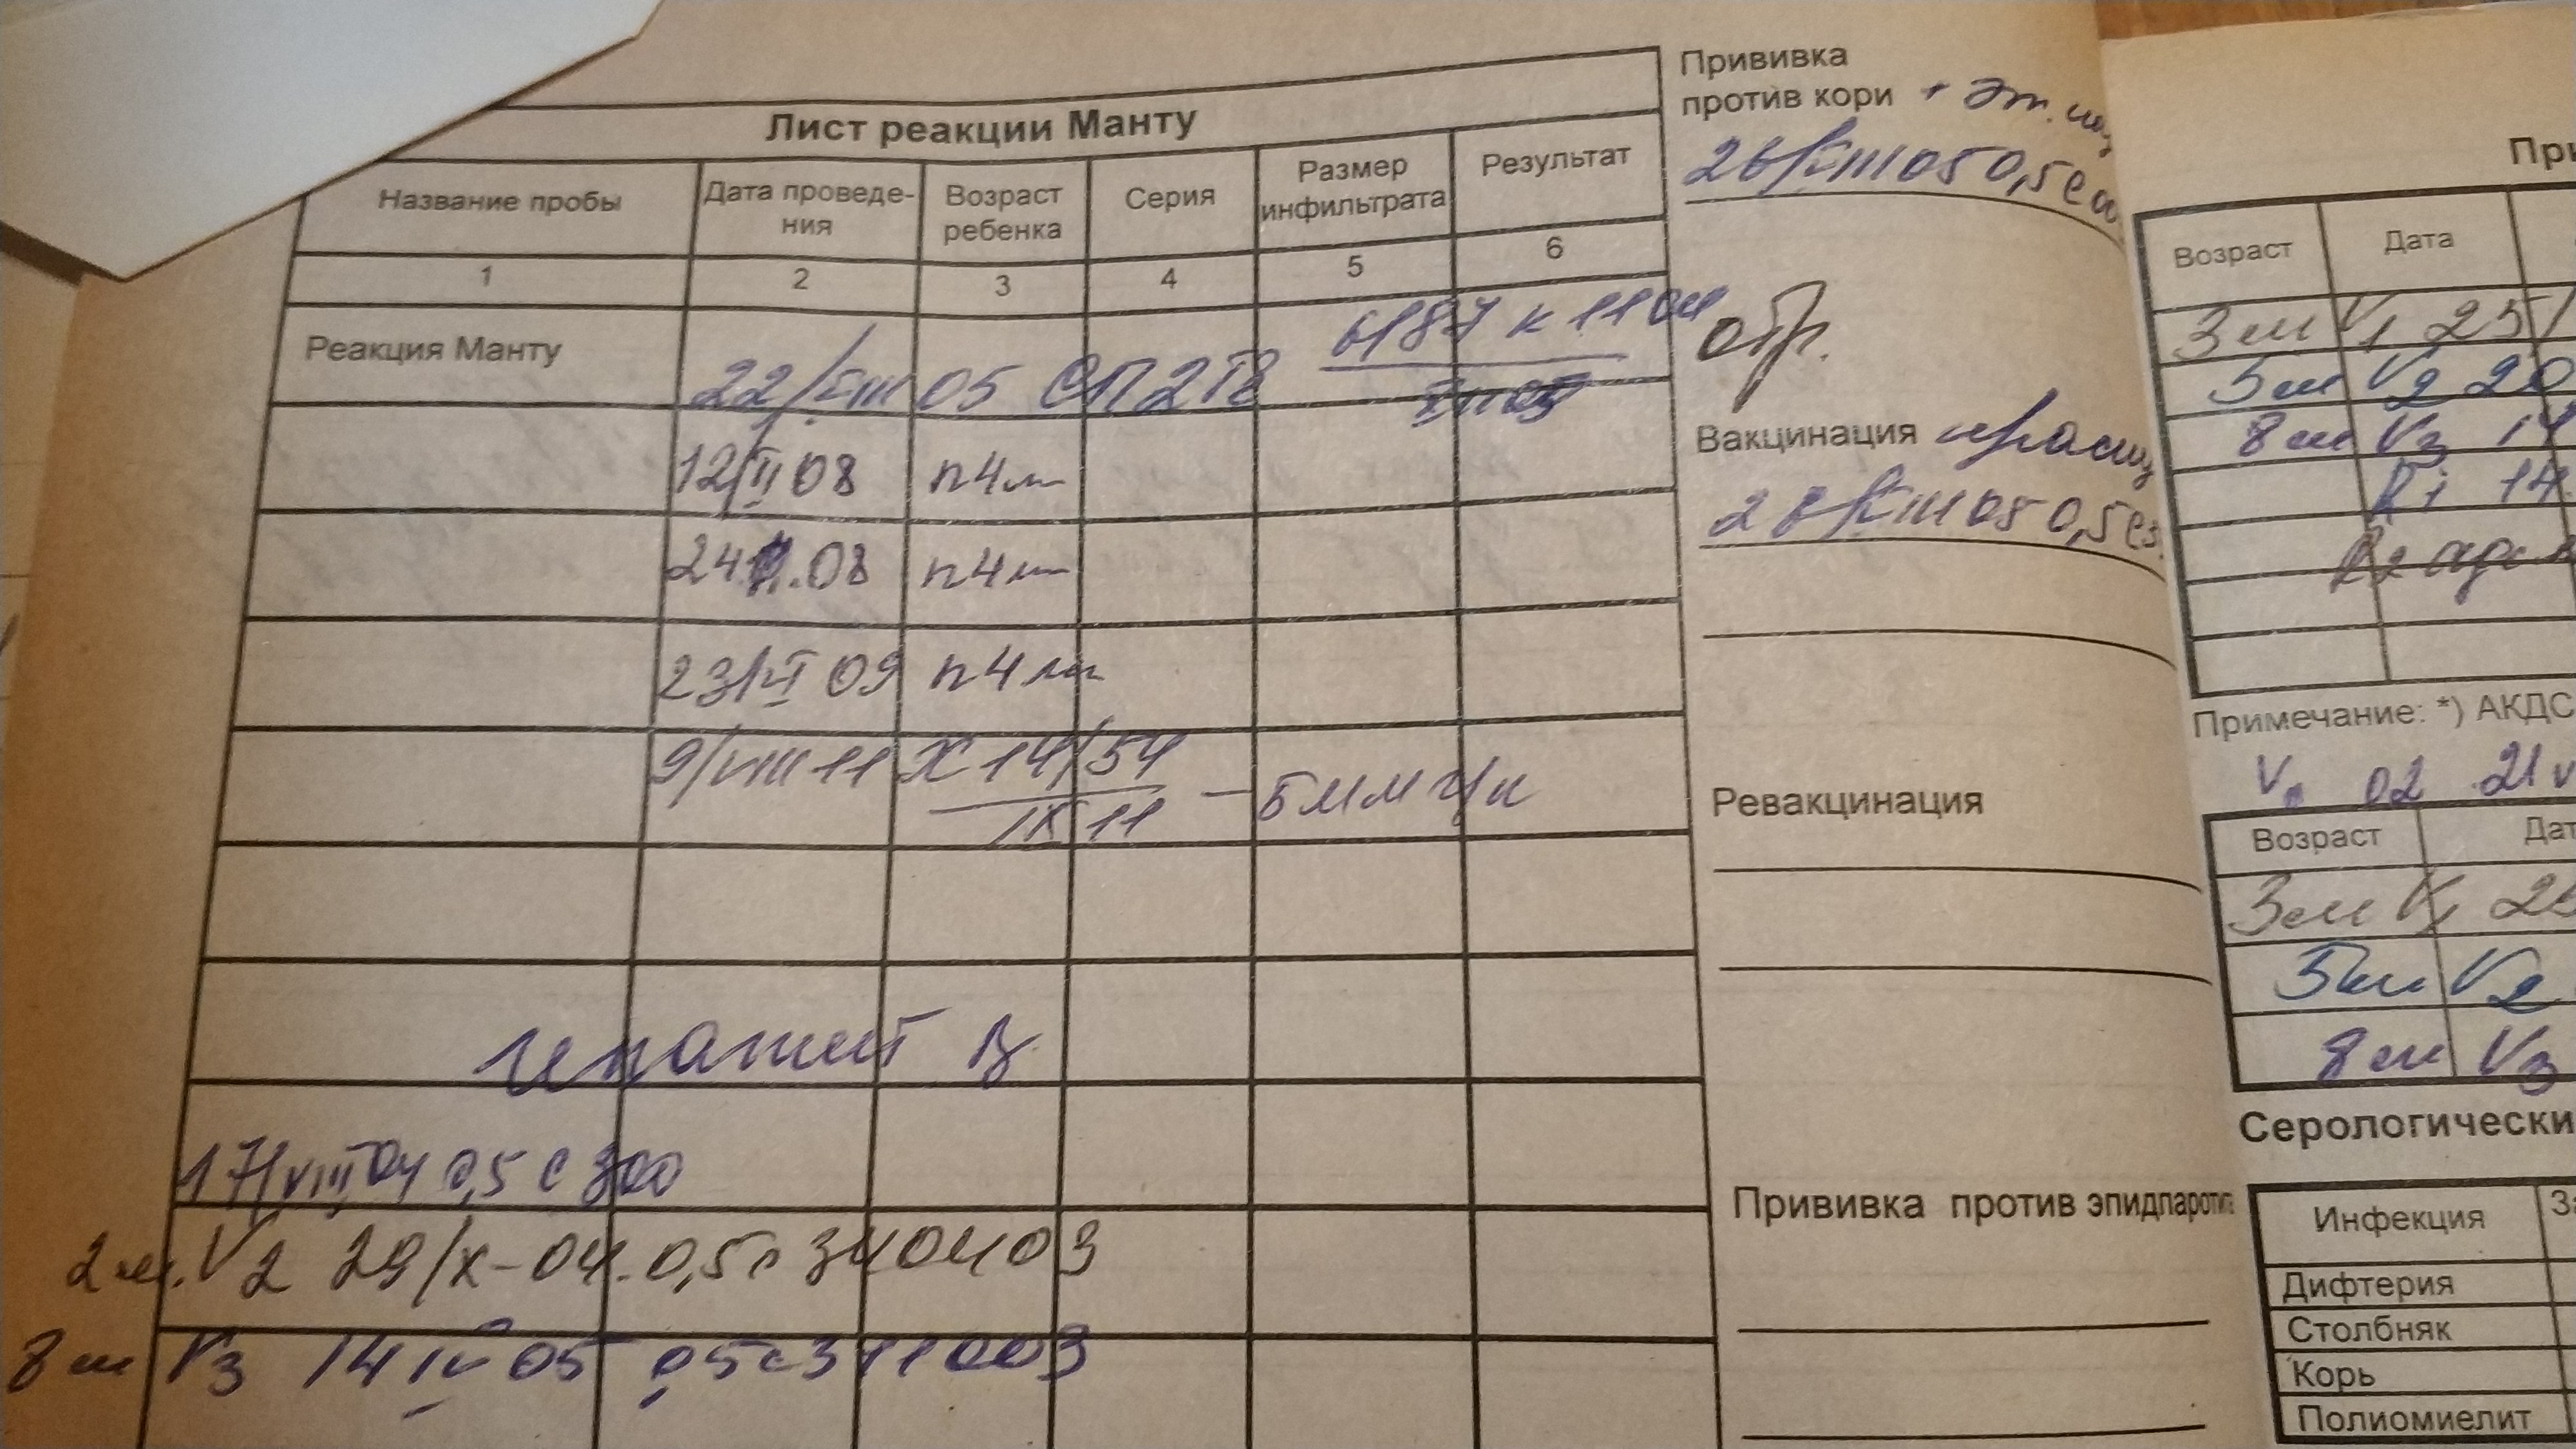 Лист реакции Манту
Название пробы Дата проведе-ния Возраст ребенка Серия Размер инфильтрата Результат
1 2 3 4 5 6
Реакция Манту 22/VIII 05 СП2ТЕ
12/II 08 п4мм
24 .08 п4мм
23/VI 09 п4мм
9/VIII 11 X 14/54
IX 11 – 5мм
гепатит В
17/VIII 04 0,5 с
2 м. V2 29/X-04. 0,5 с 340403
8 м V3 14 IV 05 0,5 с 311003
Прививка
против кори +
26/VIII 05 0,5
отр.
Вакцинация
26/VIII 05 0,5
Ревакцинация
Прививка против эпидпаротита
При
Возраст Дата
3 м V1 25
5 м V2 20
8 м V3 14
R1 14
R2 адсм
Примечание: *) АКДС
02 21
Возраст Дат
3 м V1
5 м V2
8 м V3
Серологически
Инфекция
Дифтерия
Столбняк
Корь
Полиомиелит